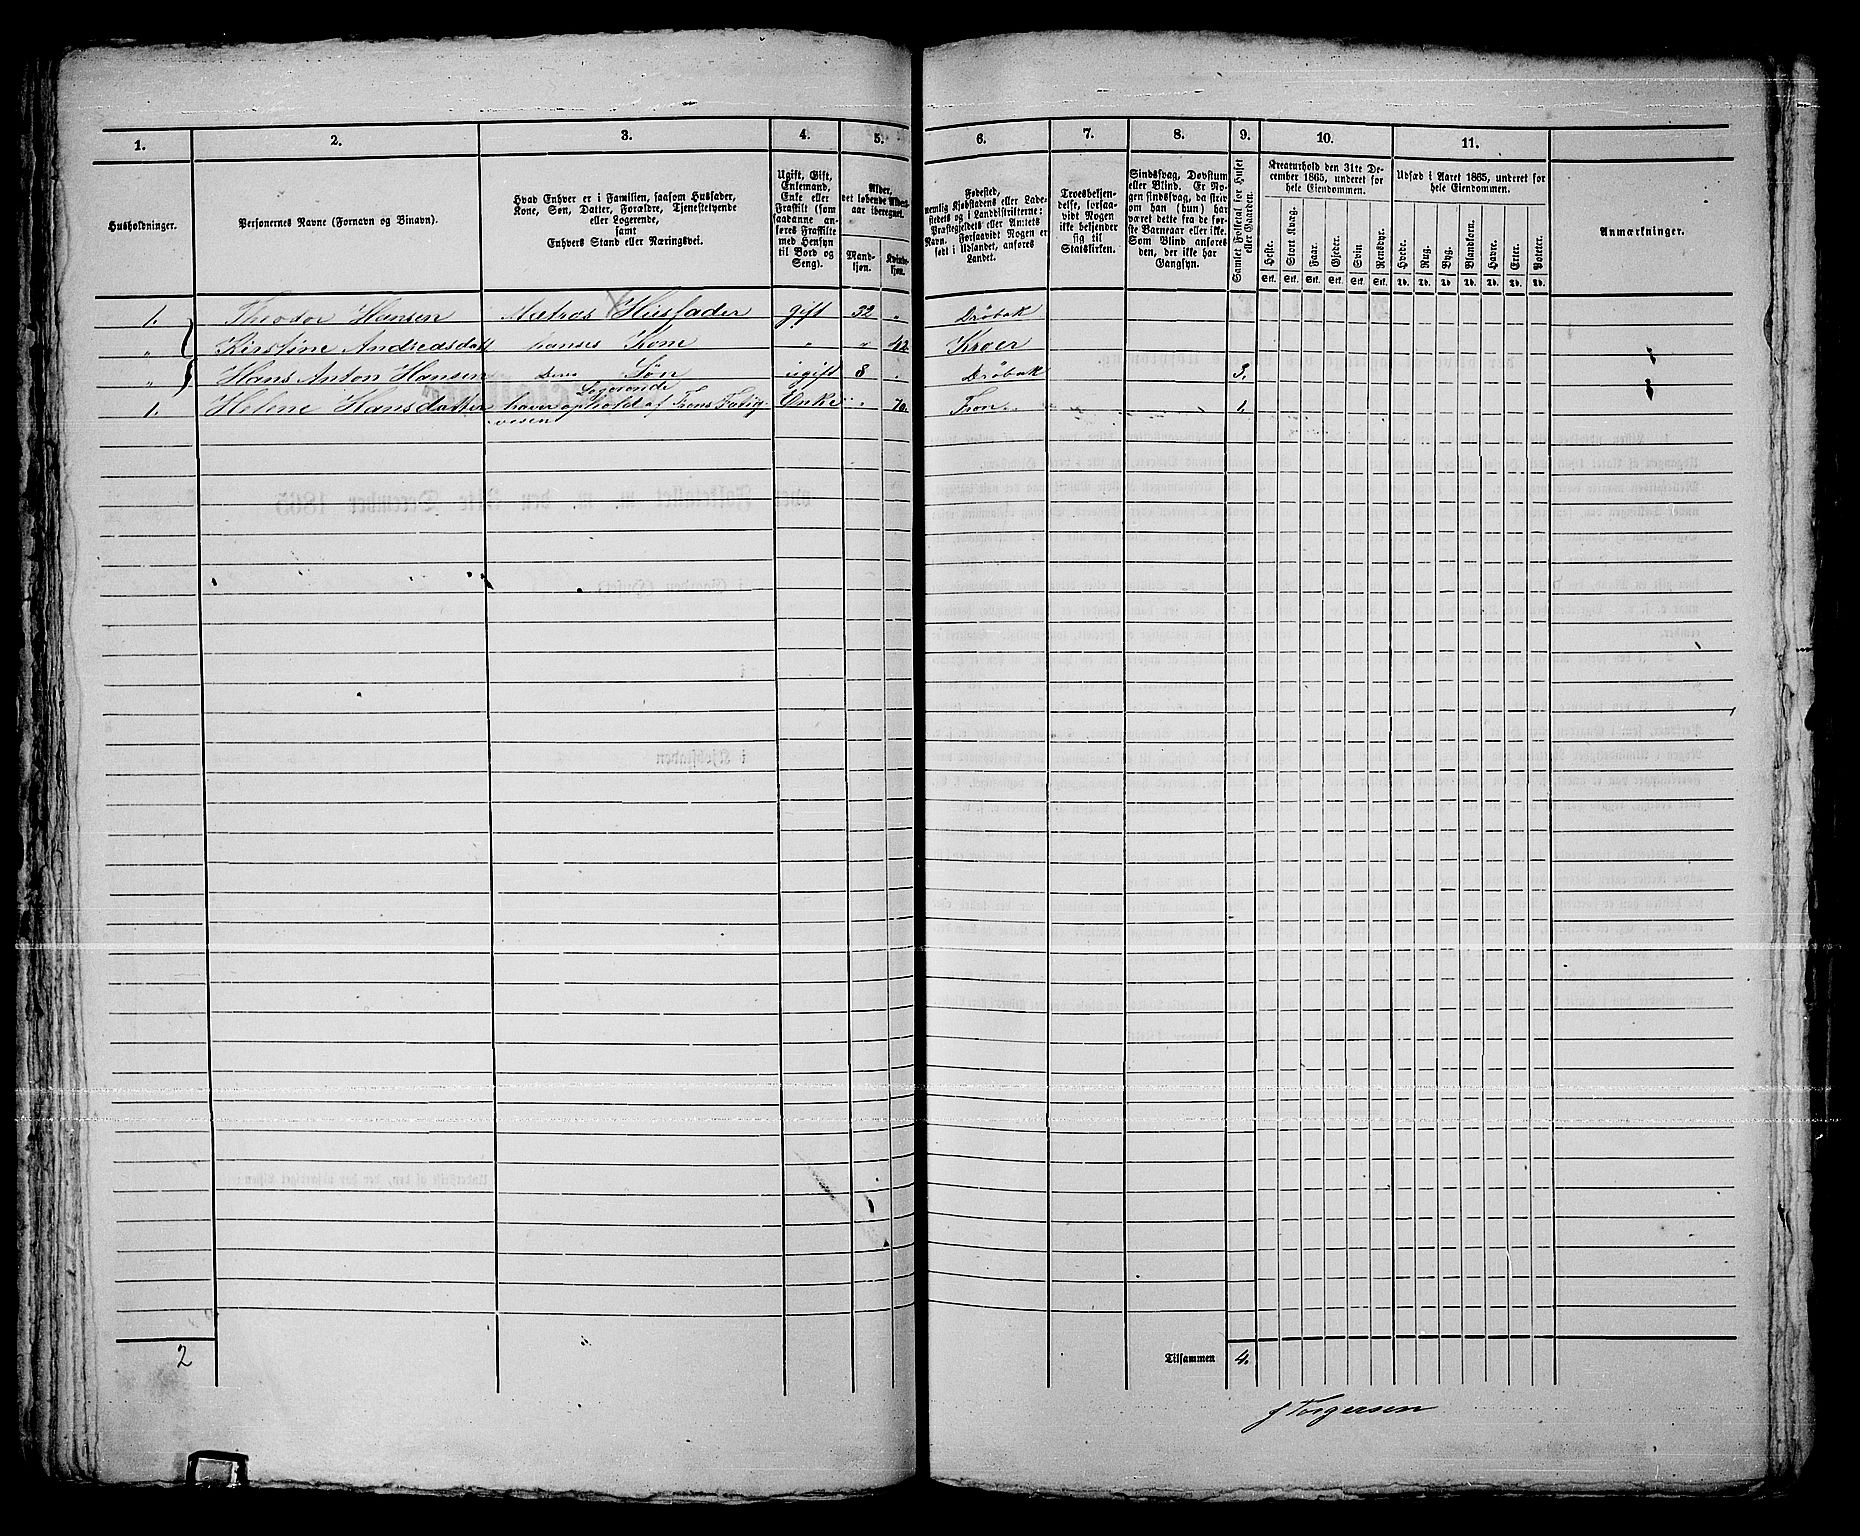 1. 2. 3. 4. 5. 6. 7. 8. 9. 10. 11.
Husholdninger.
Personernes Navne (Fornavn og Binavn).
Hvad Enhver er i Familien, saasom Husfader,
Kone, Søn, Datter, Forældre, Tjenestetyende
eller Logerende,
samt
Enhvers Stand eller Næringsvei.
Ugift, Gift,
Enkemand,
Enke eller
Fraskilt (som
saadanne an-
føres Fraskilte
med Hensyn
til Bord og
Seng).
Alder,
det løbende Alders-
aar iberegnet.
Mand-
kjøn.
Kvinde-
kjøn.
Fødested,
nemlig Kjøbstadens eller Lade-
stedets og i Landdistrikterne:
Præstegjeldets eller Amtets
Navn. Forsaavidt Nogen er
født i Udlandet, anføres
Landet.
Troesbekjen-
delse, forsaa-
vidt Nogen
ikke bekjender
sig til
Statskirken.
Sindssvag, Døvstum
eller Blind. Er No-
gen sindssvag, da skrives
om han (hun) har
været dette fra de før-
ste Barneaar eller ikke.
Som Blind anføres
den, der ikke har
Gangsyn.
Samlet Folketal for Huset
eller Gaarden.
Kreaturhold den 31te De-
cember 1865, underet for
hele Eiendommen.
Heste. Stort Kvæg. Faar. Gjeder. Svin Rensdyr.
Stk. Stk. Stk. Stk. Stk. Stk.
Udsæd i Aaret 1865, underet for
hele Eiendommen.
Hvede. Rug. Byg. Blandkorn. Havre. Erter. Poteter.
Td. Td. Td. Td. Td. Td. Td.
Anmærkninger.
1. Theodor Hansen Matros Husfader gift 32 „ Drøbak
„ Kirstine Andreasdatt hanses Kone „ „ 42 Kroer
„ Hans Anton Hansen Deres Søn ugift 8 „ Drøbak 3.
Logerende
1. Helene Hansdatter haver ophold af Frons Fatig- Enke „ 70. Fron 1.
vesen
2 Tilsammen 4.
J Torgersen